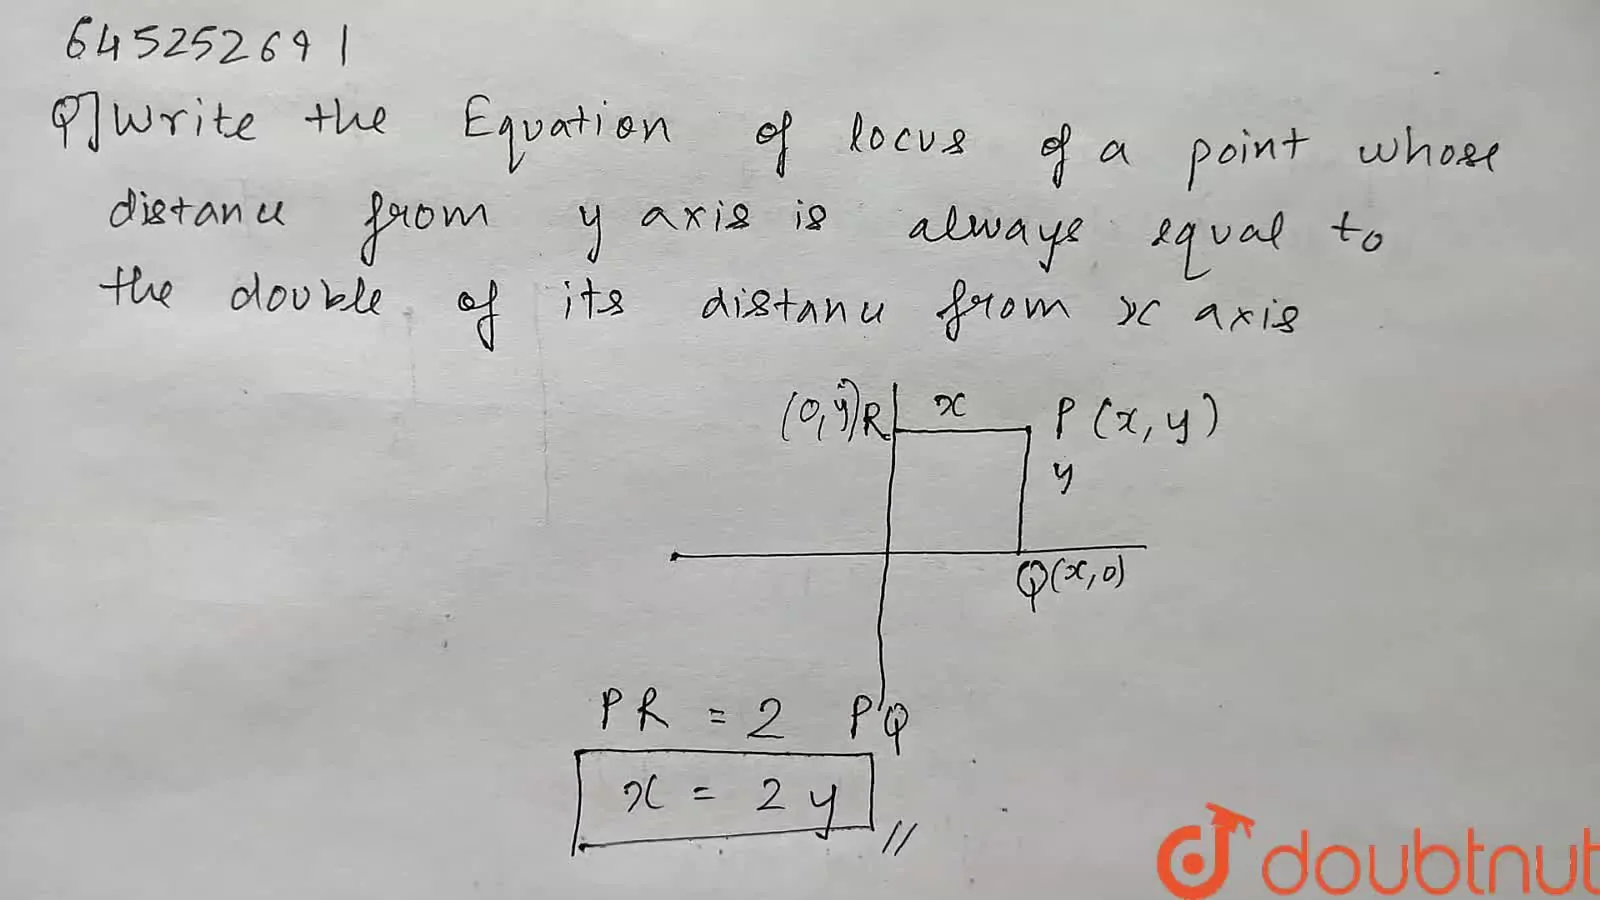 645252691
Q] Write the Equation of locus of a point whose
distance from y axis is always equal to
the double of its distance from x axis
(0,y) R x P (x, y)
y
Q (x,0)
PR = 2 PQ
x = 2y //
doubtnut